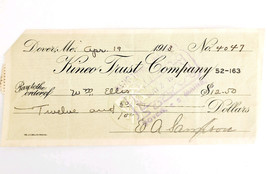 Dover, Me. Apr. 19 1913 No. 4047
Kineo Trust Company 52-163
Pay to the order of Wm Ellis $12.50
Twelve and 50/100 Dollars